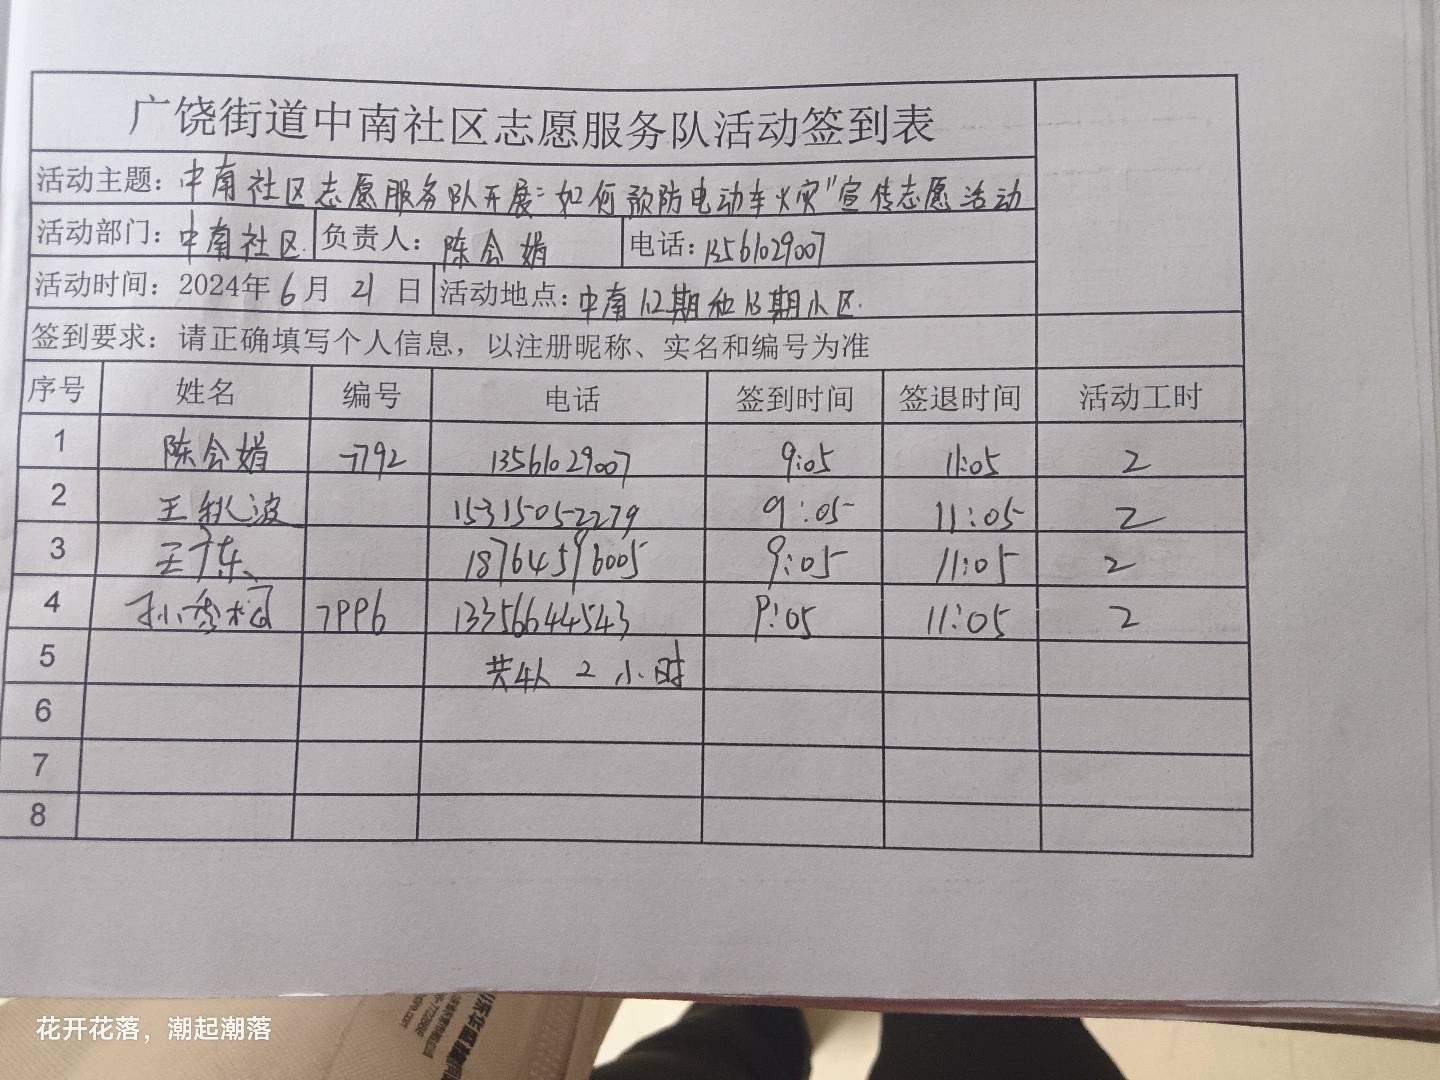 广饶街道中南社区志愿服务队活动签到表
活动主题：中南社区志愿服务队开展"如何预防电动车火灾"宣传志愿活动
活动部门：中南社区 负责人：陈会娟 电话：13561029007
活动时间：2024年6月21日 活动地点：中南12期和13期小区.
签到要求：请正确填写个人信息，以注册昵称、实名和编号为准
序号 姓名 编号 电话 签到时间 签退时间 活动工时
1 陈会娟 7792 13561029007 9:05 11:05 2
2 王秋波 15315052279 9:05 11:05 2
3 王广东 18764596005 9:05 11:05 2
4 孙秀 7996 13356644543 9:05 11:05 2
5 共4人 2小时
6
7
8
花开花落，潮起潮落